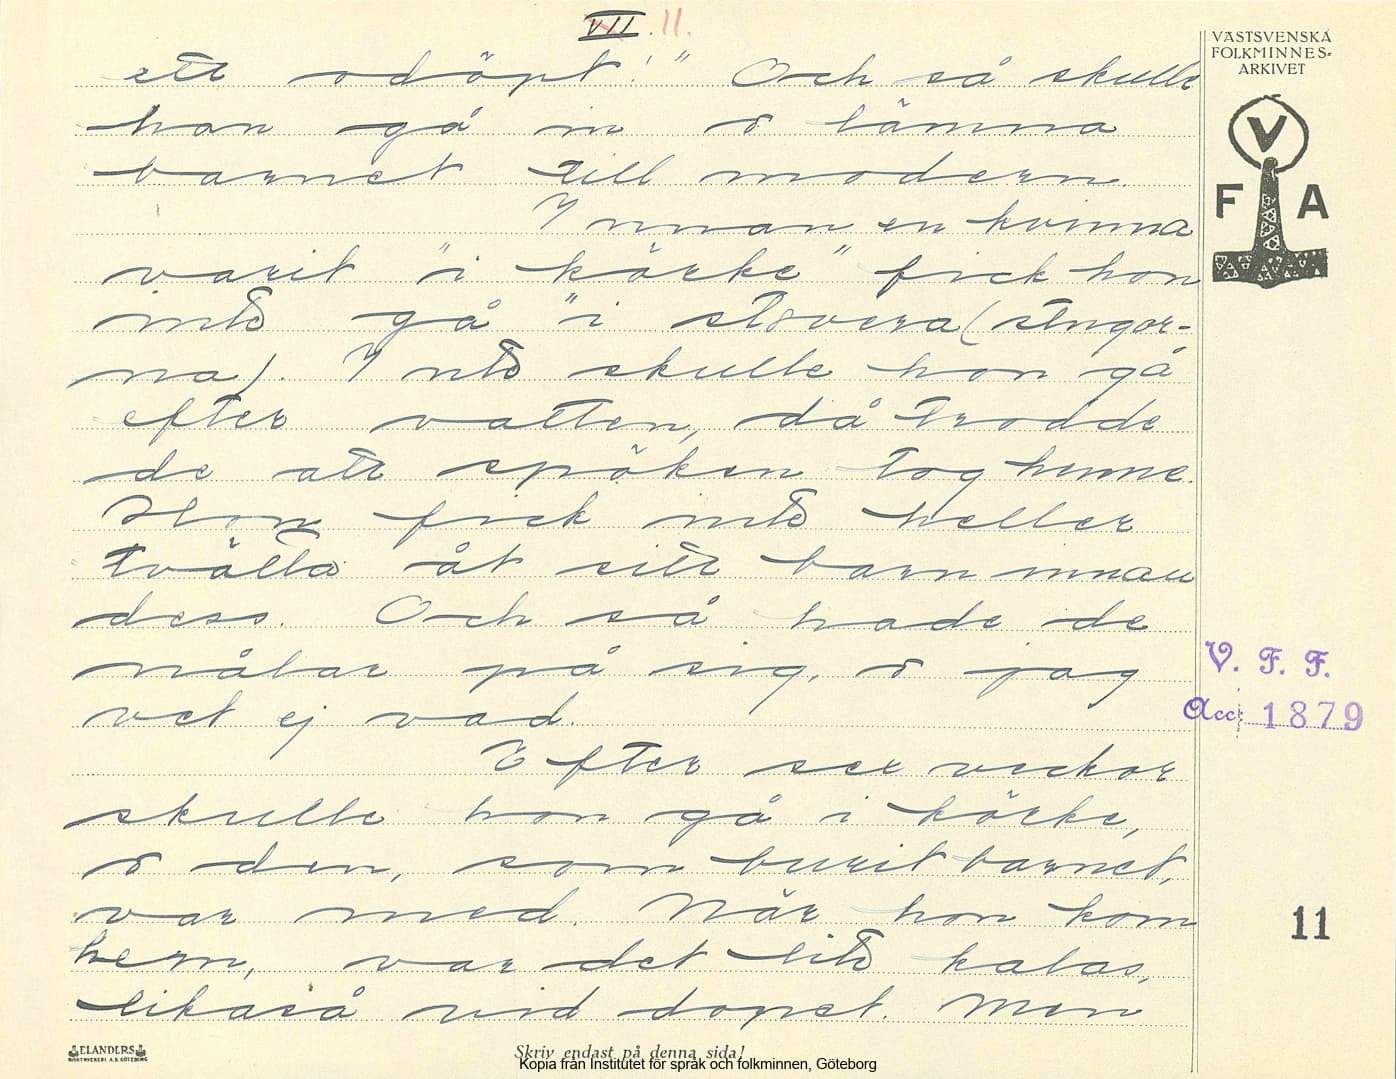 VII. 11.
VÄSTSVENSKA
FOLKMINNES-
ARKIVET
ett odöpt!" Och så skulle
hon gå in o lämna
barnet till modern.
Innan en kvinna
varit "i körke" fick hon
inte gå "i stovera (stugor-
na). Inte skulle hon gå
efter vatten, då trodde
de att spöken tog henne.
Hon fick inte heller
tvätta åt sitt barn innan
dess. Och så hade de
nålar på sig, o jag
vet ej vad.
Efter sex veckor
skulle hon gå i körke,
o den, som burit barnet,
var med. När hon kom
hem, var det lite kalas,
likaså vid dopet. Men
V
F A
V. F. F.
Acc: 1879
11
ELANDERS
BOKTRYCKERI A.B. GÖTEBORG
Skriv endast på denna sida!
Kopia från Institutet för språk och folkminnen, Göteborg